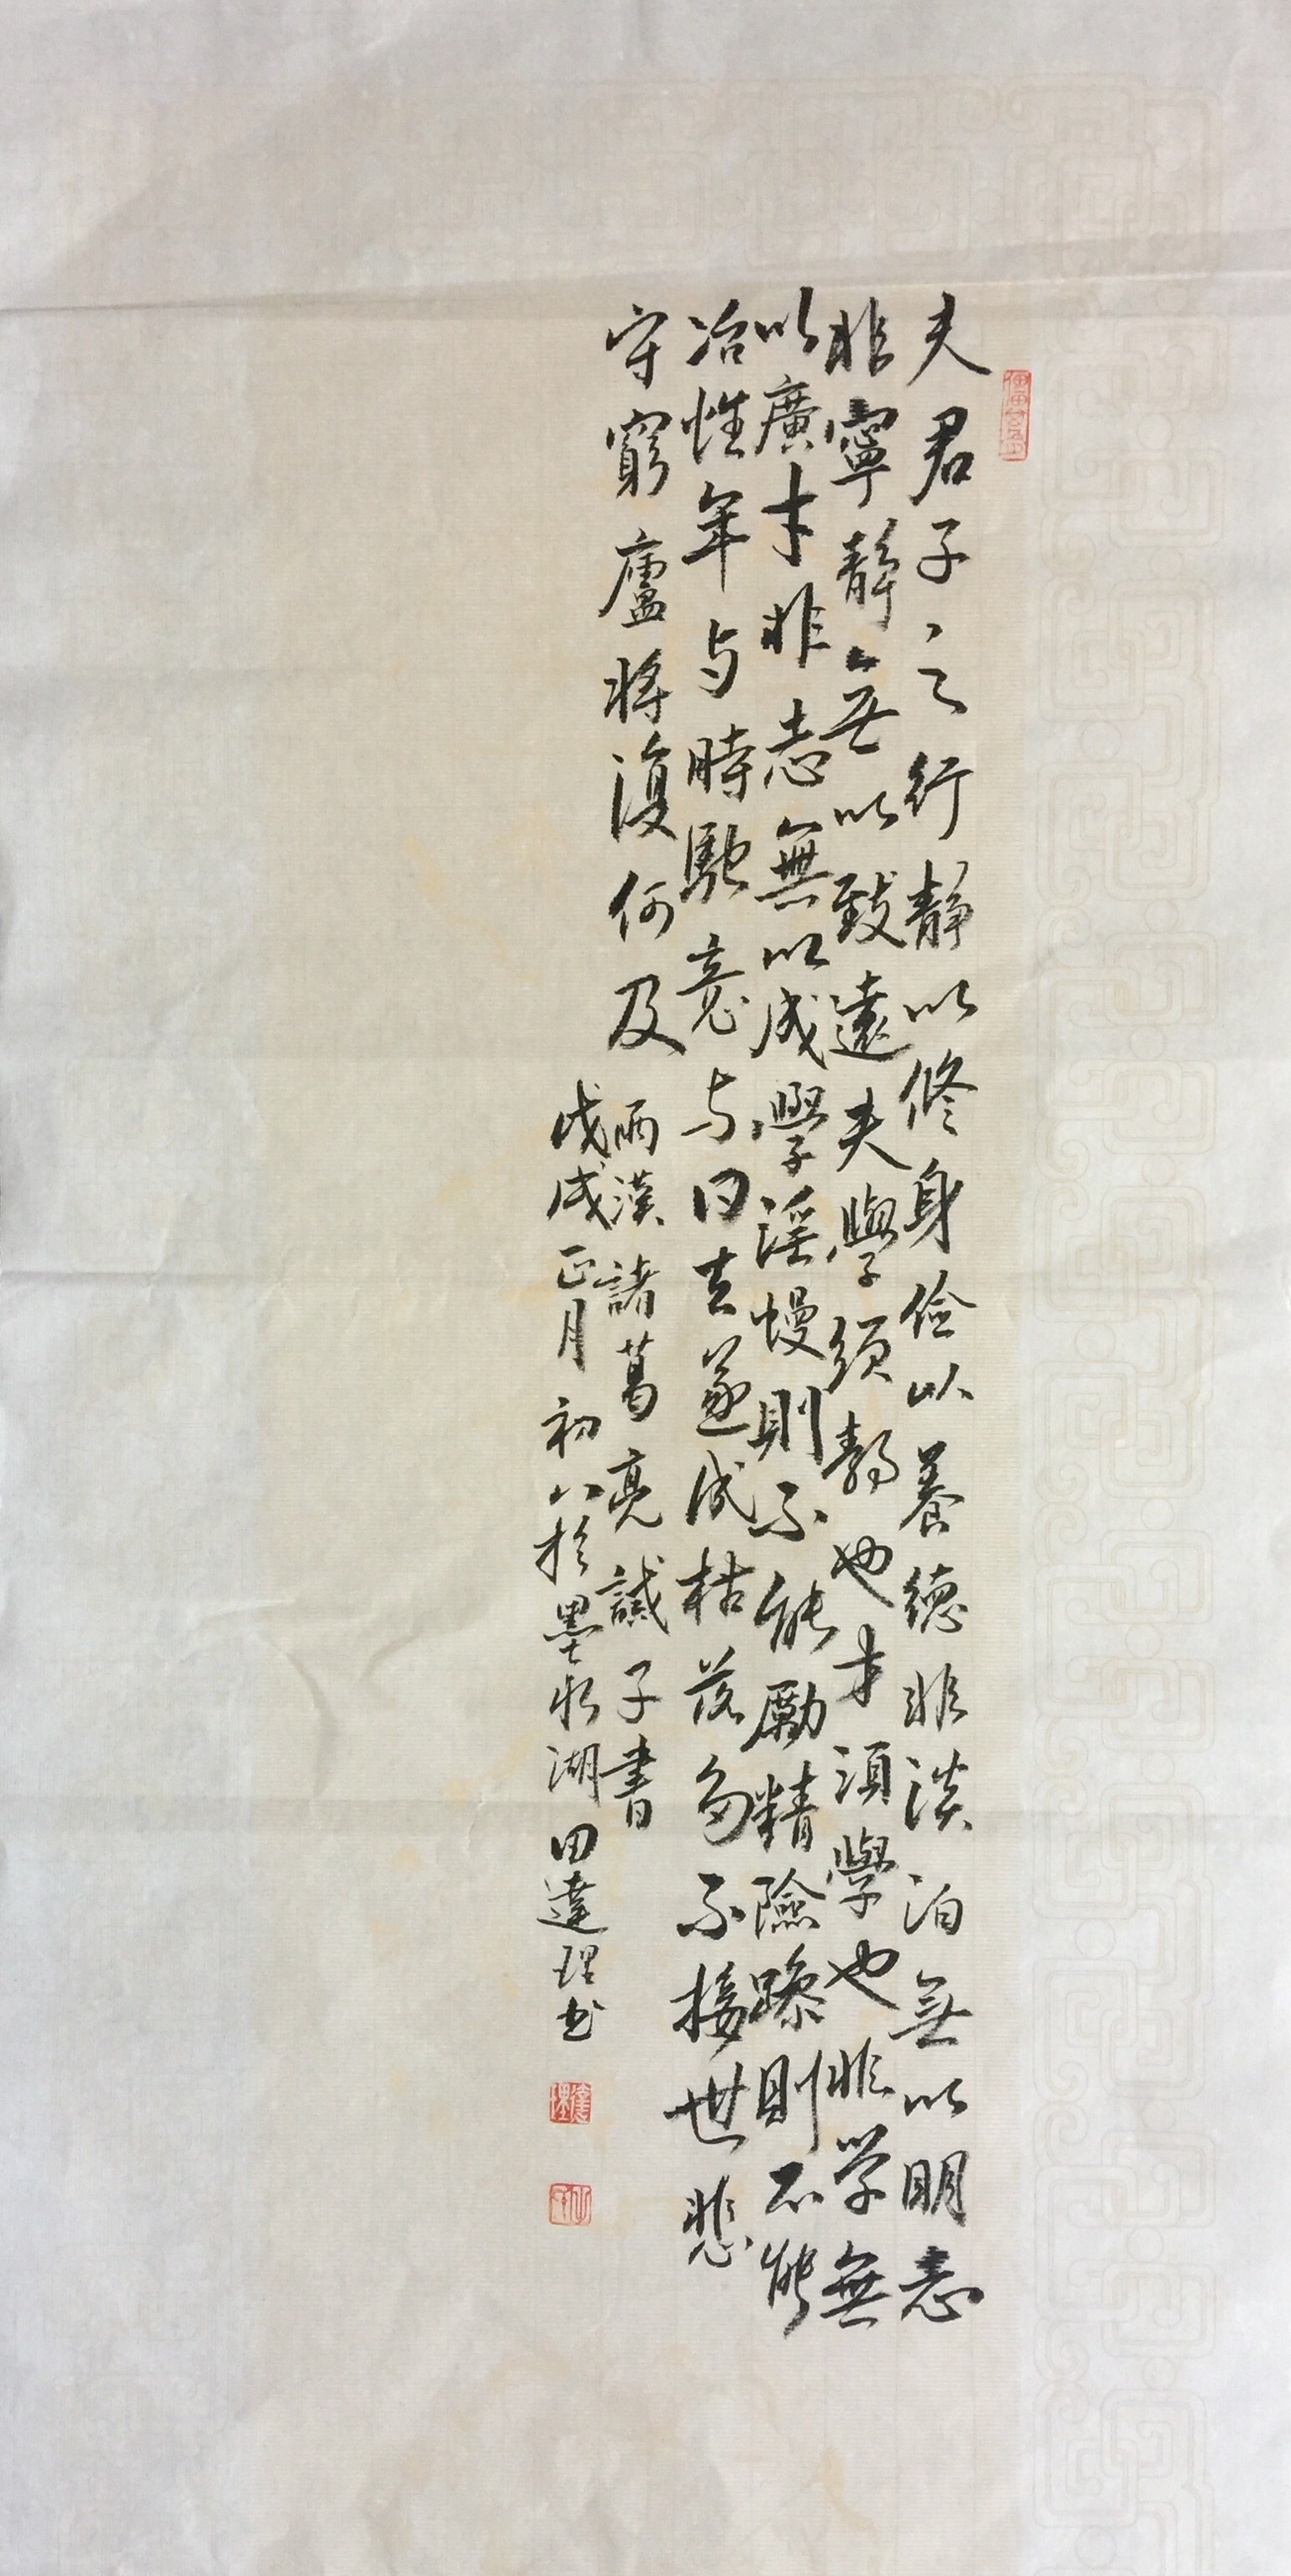 夫君子之行靜以修身儉以養德非淡泊無以明志
非寧靜無以致遠夫學須靜也才須學也非学無
以廣才非志無以成學淫慢則不能勵精險躁則不能
冶性年与時馳意与日去遂成枯落多不接世悲
守窮廬將復何及
兩漢諸葛亮誡子書
戊戌正月初八於墨水湖田達理书
達理